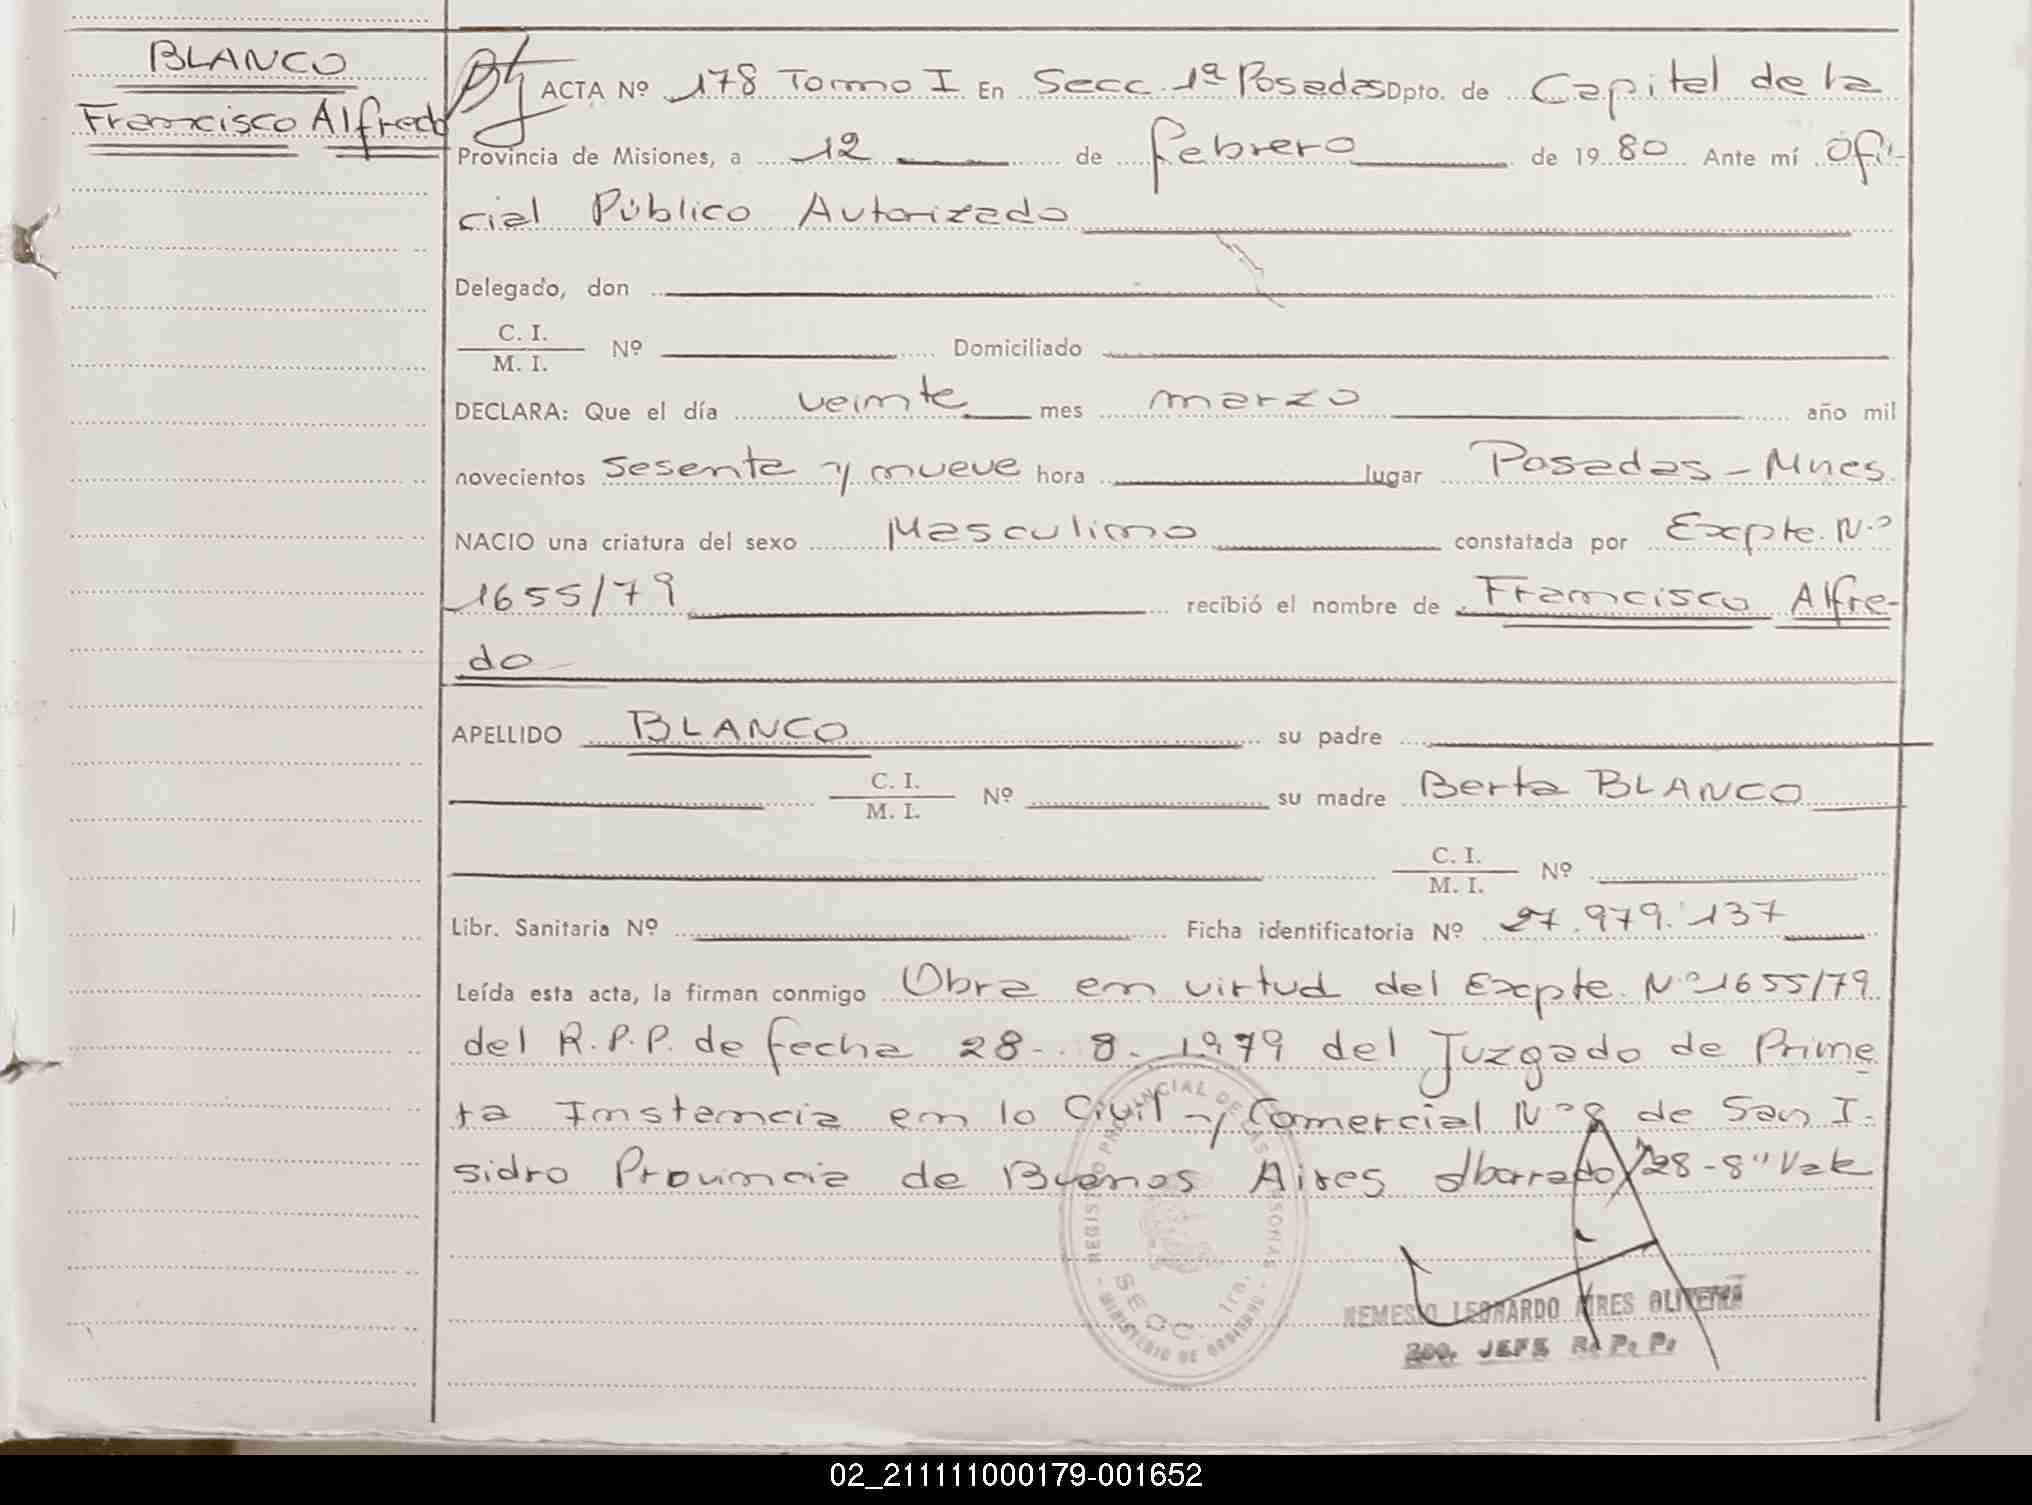 BLANCO
Francisco Alfredo
ACTA Nº 178 Tomo I En Secc. 1ª Posadas Dpto. de Capital de la
Provincia de Misiones, a 12 de febrero de 1980 Ante mí Ofi-
cial Público Autorizado
Delegado, don
C. I.
M. I. Nº Domiciliado
DECLARA: Que el día veinte mes marzo año mil
novecientos sesenta y nueve hora lugar Posadas - Mnes.
NACIO una criatura del sexo Masculino constatada por Expte. Nº
1655/79 recibió el nombre de Francisco Alfre-
do
APELLIDO BLANCO su padre
C. I.
M. I. Nº su madre Berta BLANCO
C. I.
M. I. Nº
Libr. Sanitaria Nº Ficha identificatoria Nº 27.979.137
Leída esta acta, la firman conmigo Obra en virtud del Expte. Nº 1655/79
del R.P.P. de fecha 28-8-1979 del Juzgado de Prime
ra Instancia en lo Civil y Comercial Nº 8 de San I-
sidro Provincia de Buenos Aires s/borrado "28-8" Vale
REGISTRO PROVINCIAL DE LAS PERSONAS
SECC. 1ra.
MINISTERIO DE GOBIERNO
NEMESIO LEONARDO AIRES OLIVEIRA
2DO. JEFE R. P. P.
02_211111000179-001652